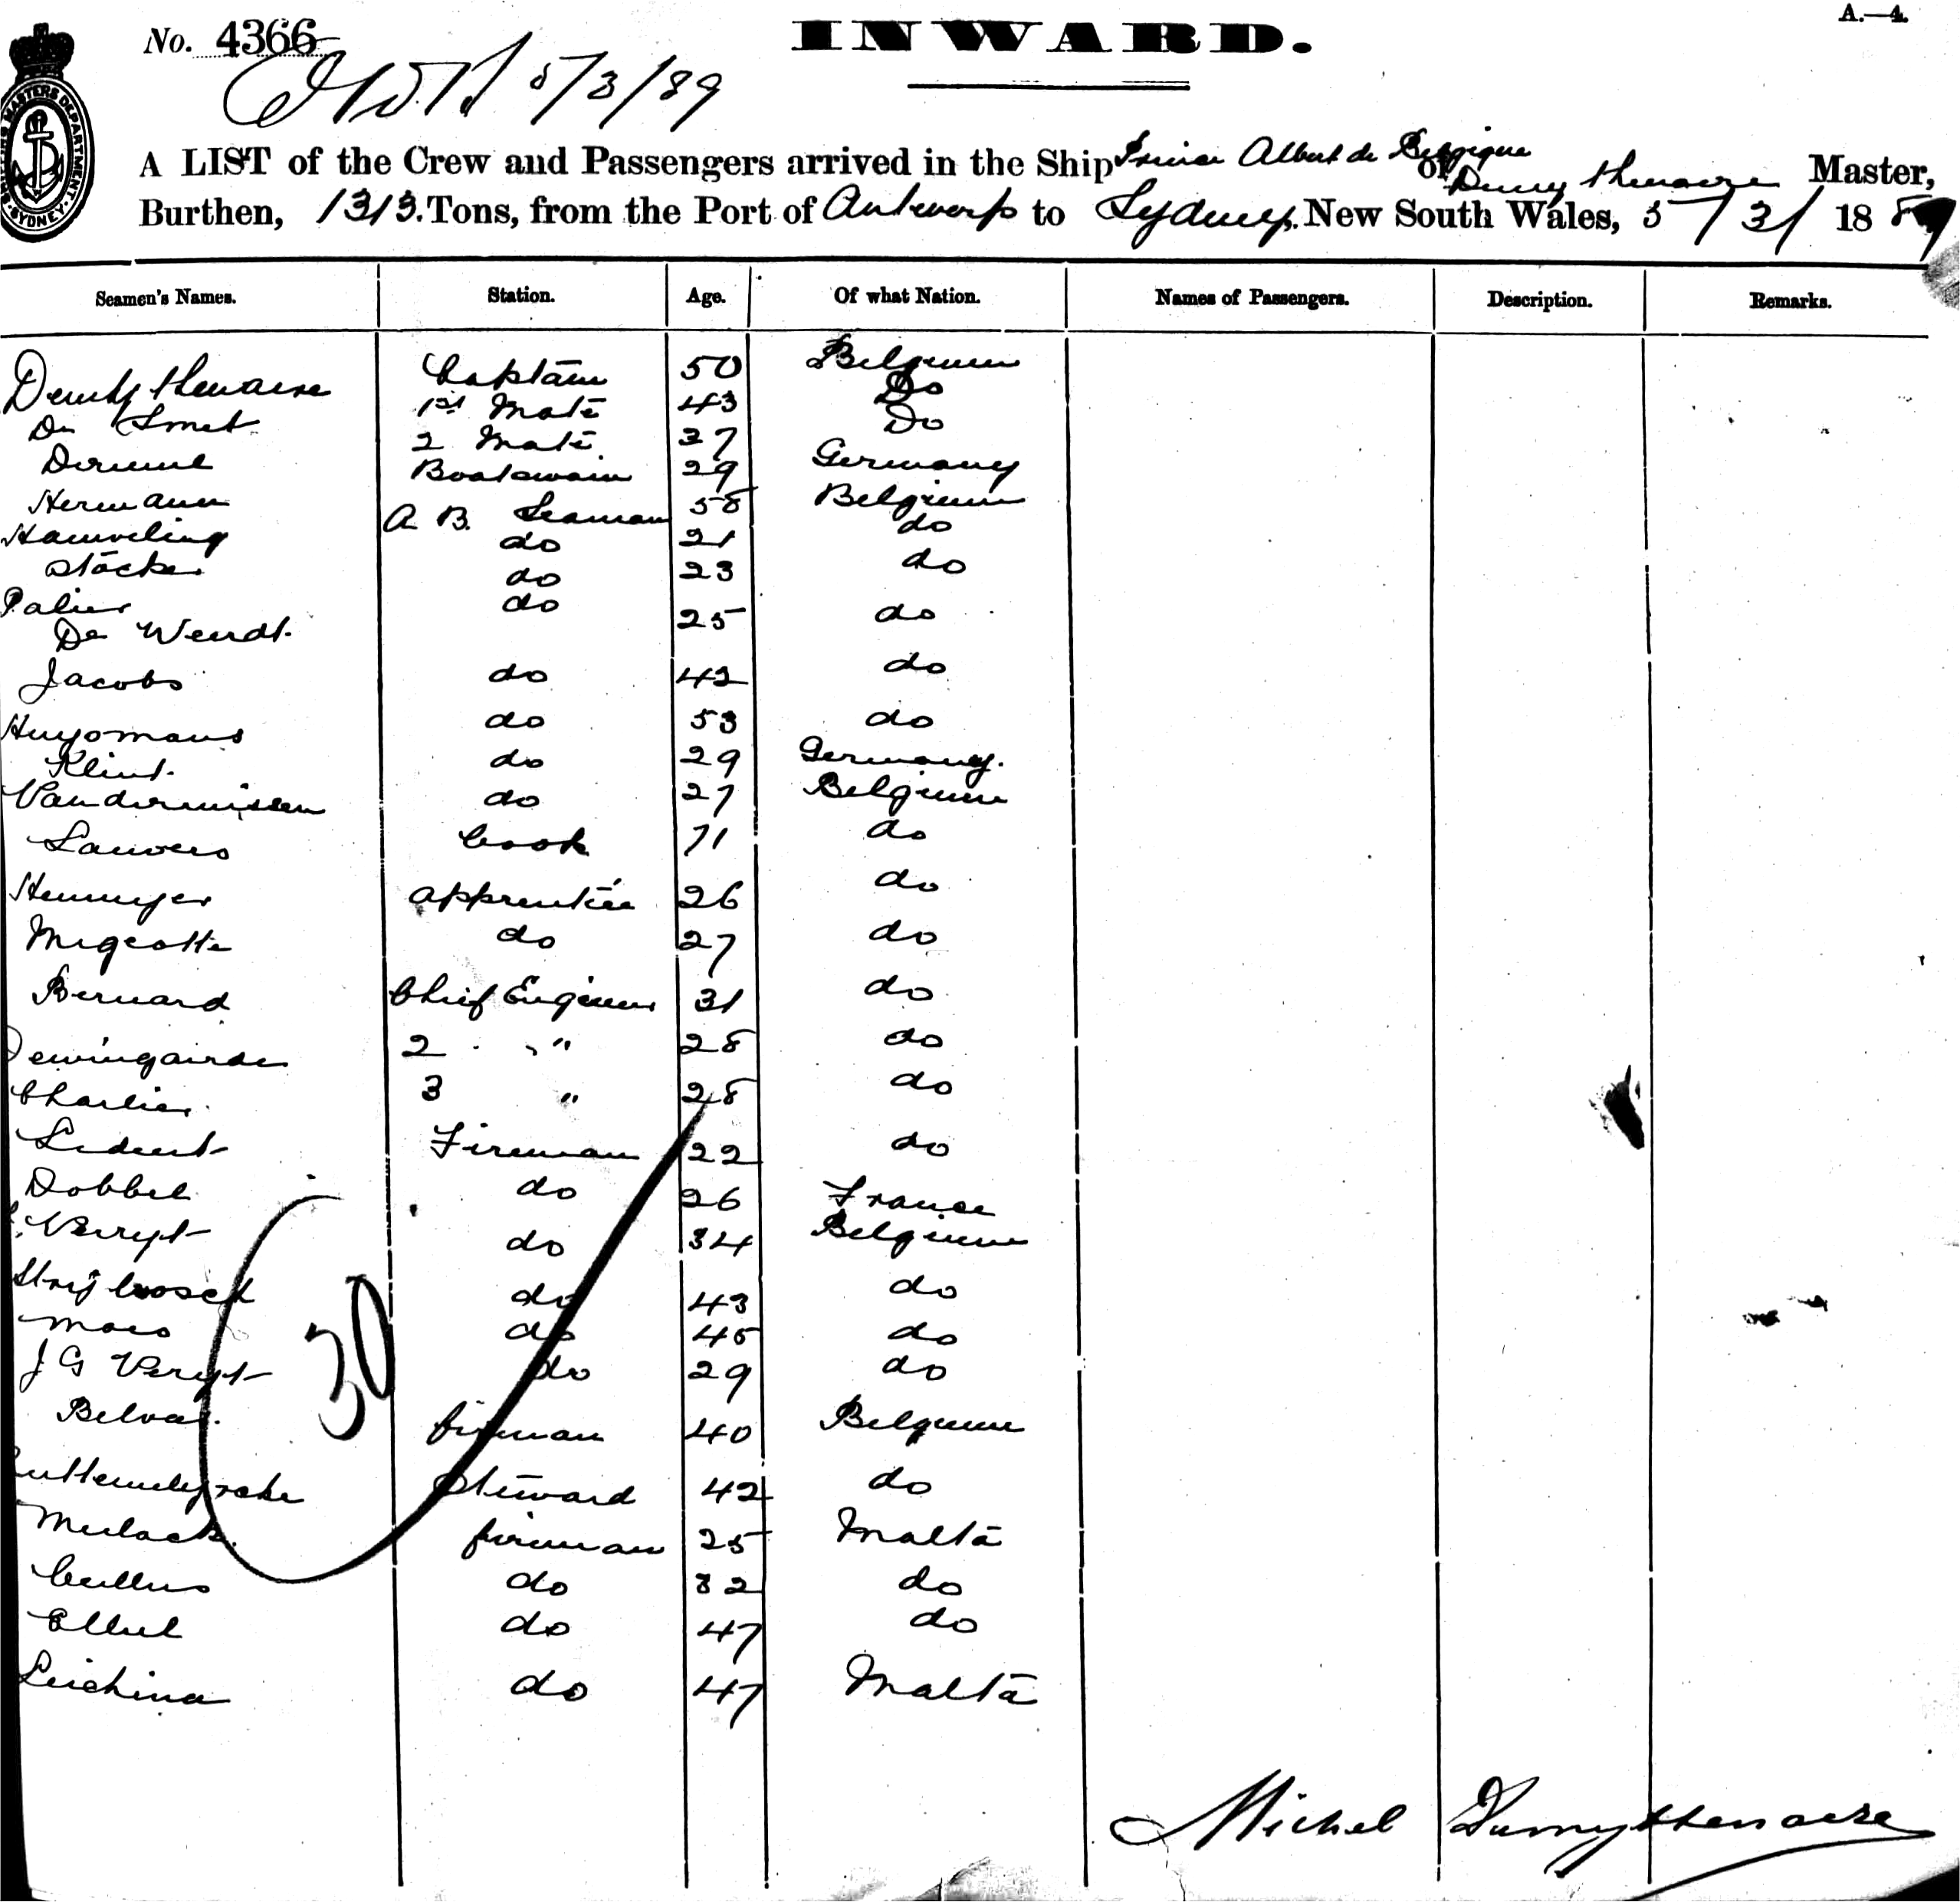 A.—4.
No. 4366
INWARD.
5/3/89
SHIPPING MASTERS DEPARTMENT SYDNEY
A LIST of the Crew and Passengers arrived in the Ship Prince Albert de Belgique of Master,
Burthen, 1313. Tons, from the Port of Antwerp to Sydney. New South Wales, 5/3/1889
Seamen's Names. Station. Age. Of what Nation. Names of Passengers. Description. Remarks.
Captain 50 Belgium
De Smet 1st Mate 43 Do
2 Mate 37 Do
Hermann Boatswain 29 Germany
A B. Seaman 58 Belgium
Stöcker do 21 do
Palier do 23 do
De Wendt. do 25 do
Jacobs do 42 do
Huyomans do 53 do
Klint. do 29 Germany.
Vandermissen do 27 Belgium
Lauvers Cook 71 do
apprentice 26 do
Migeotte do 27 do
Bernard Chief Engineer 31 do
2 " 28 do
Charlier 3 " 28 do
Ledent Fireman 22 do
Dobbel do 26 France
Verryt do 34 Belgium
Strijbosch do 43 do
Maes do 45 do
J G Veryt do 29 do
30
fireman 40 Belgium
Steward 42 do
fireman 25 Malta
do 32 do
Ellul do 47 do
do 47 Malta
Michel